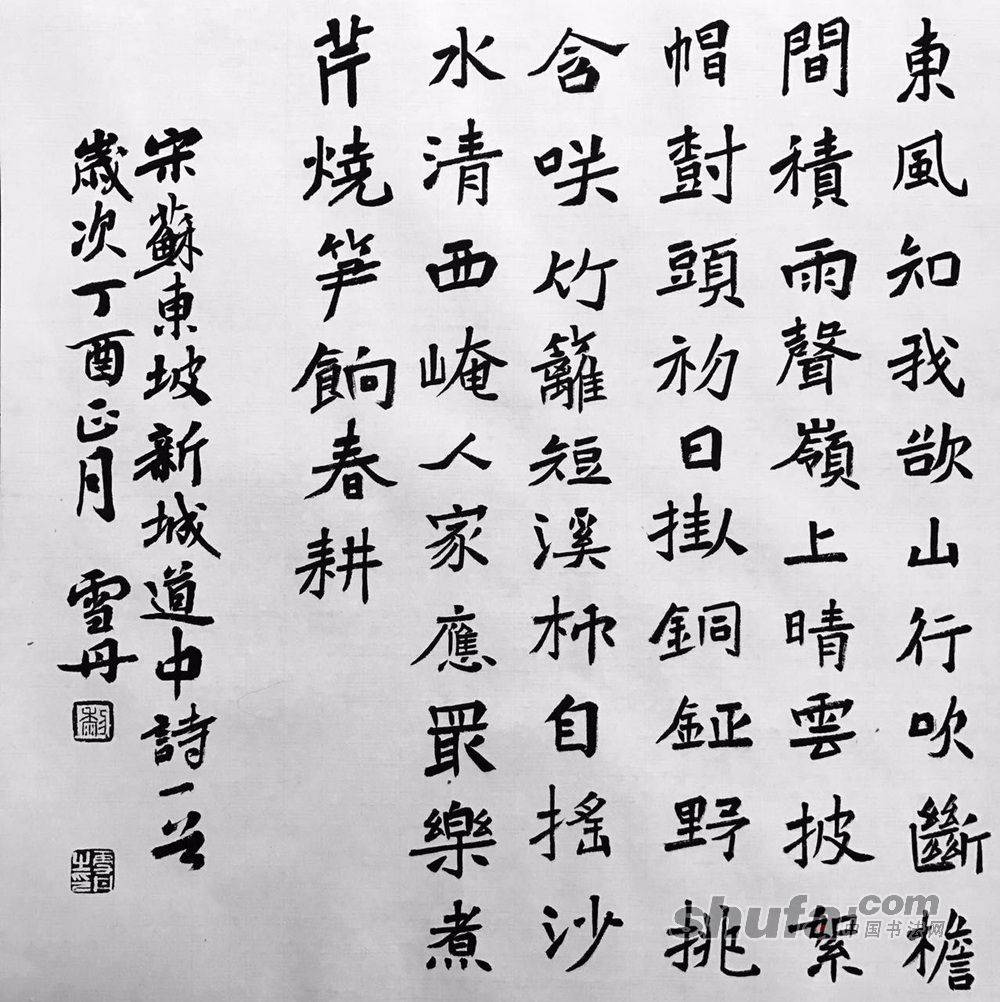 東風知我欲山行吹斷檐
間積雨聲嶺上晴雲披絮
帽樹頭初日掛銅鉦野桃
含咲竹籬短溪柳自搖沙
水清西崦人家應冣樂煮
芹燒笋餉春耕
宋蘇東坡新城道中詩一首
歲次丁酉正月 雪丹
shufa.com
中国书法网